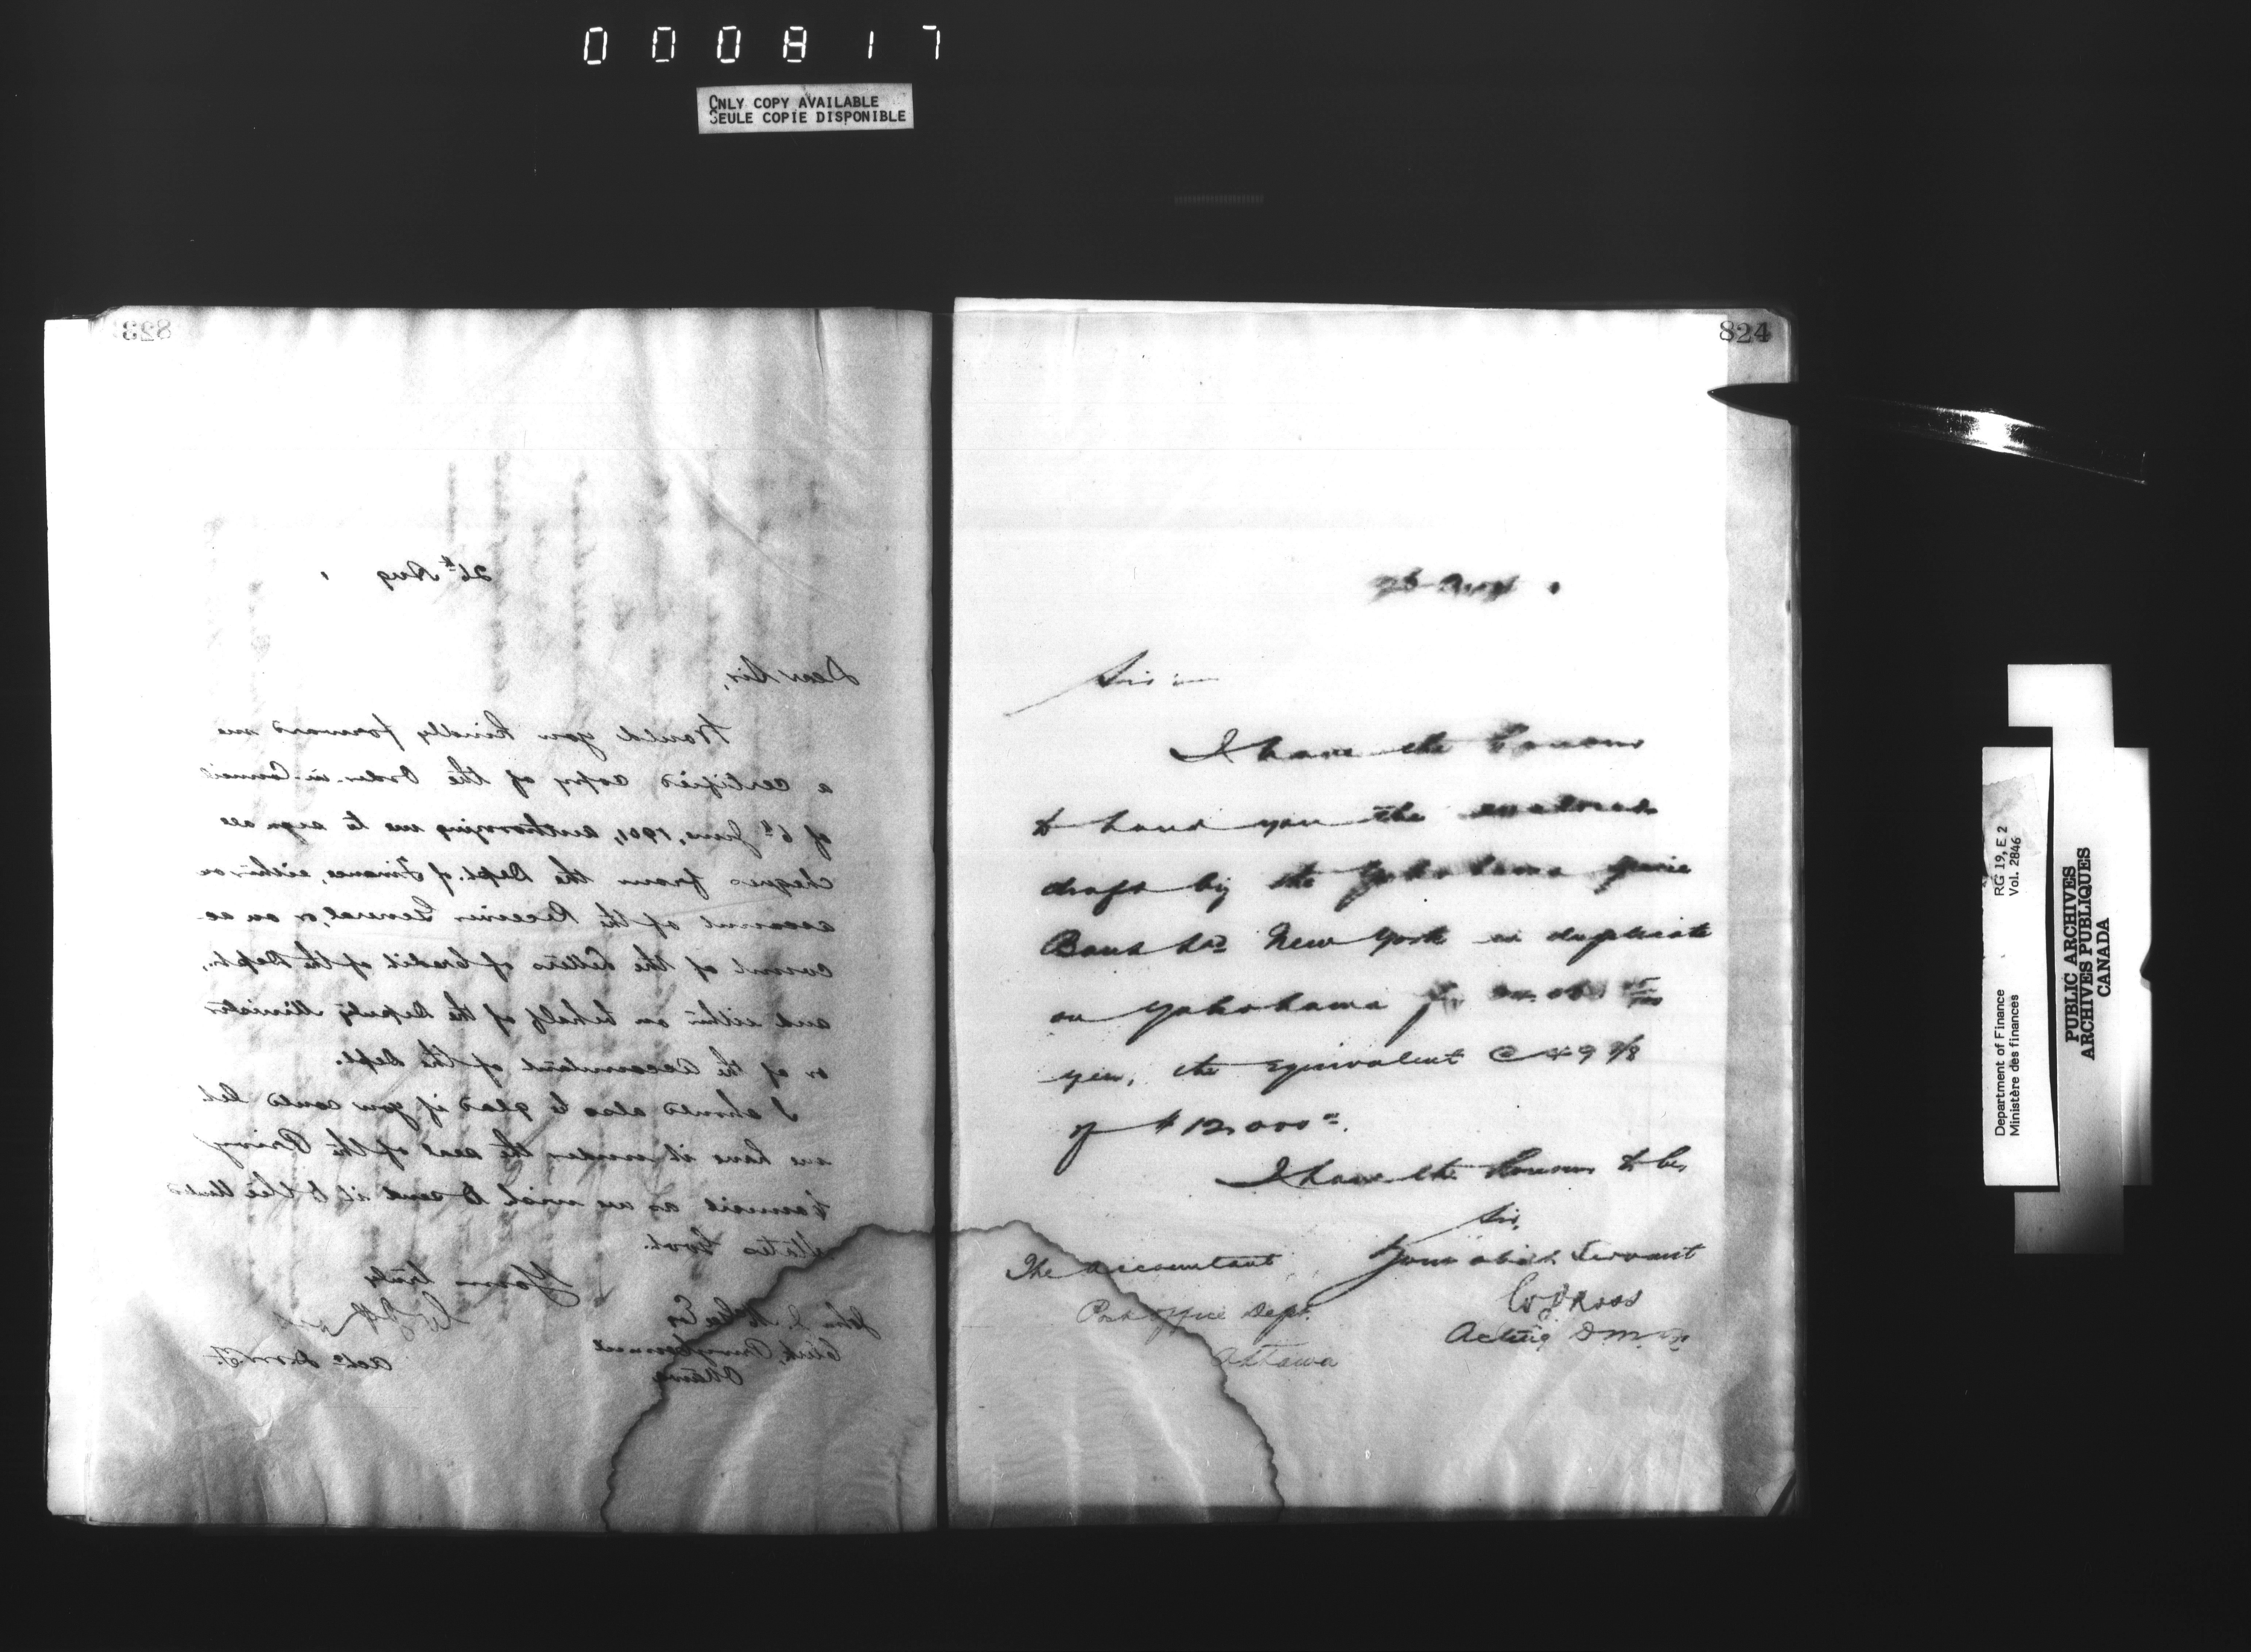 000817
ONLY COPY AVAILABLE
SEULE COPIE DISPONIBLE
823
26th Aug 1
Dear Sir,
Would you kindly forward me
a certified copy of the Order-in-Council
of 6th June, 1901, authorizing me to sign all
cheques from the Dept. of Finance, either on
account of the Receiver General, or on ac-
count of the Letters of Credit of the Dept.,
and either on behalf of the Deputy Minister
or of the Accountant of the Dept.
I should also be glad if you could let
me have it under the seal of the Privy
Council as we wish to send it to the United
States Govt.
Yours truly
John J. McGee Esq
Clerk, Privy Council
Ottawa
Actg D.M.F.
824
26 Augt 1
Sir
I have the honour
to hand you the enclosed
draft by the Yokohama Specie
Bank Ltd New York in duplicate
on Yokohama for
yen, the equivalent @ 49 7/8
of $12,000.00
I have the honour to be,
Sir,
Your obedt. Servant
The Accountant
Post Office Dept.
Ottawa
Ross
Acting D.M.F.
Department of Finance
Ministère des finances
RG 19, E 2
Vol. 2846
PUBLIC ARCHIVES
ARCHIVES PUBLIQUES
CANADA